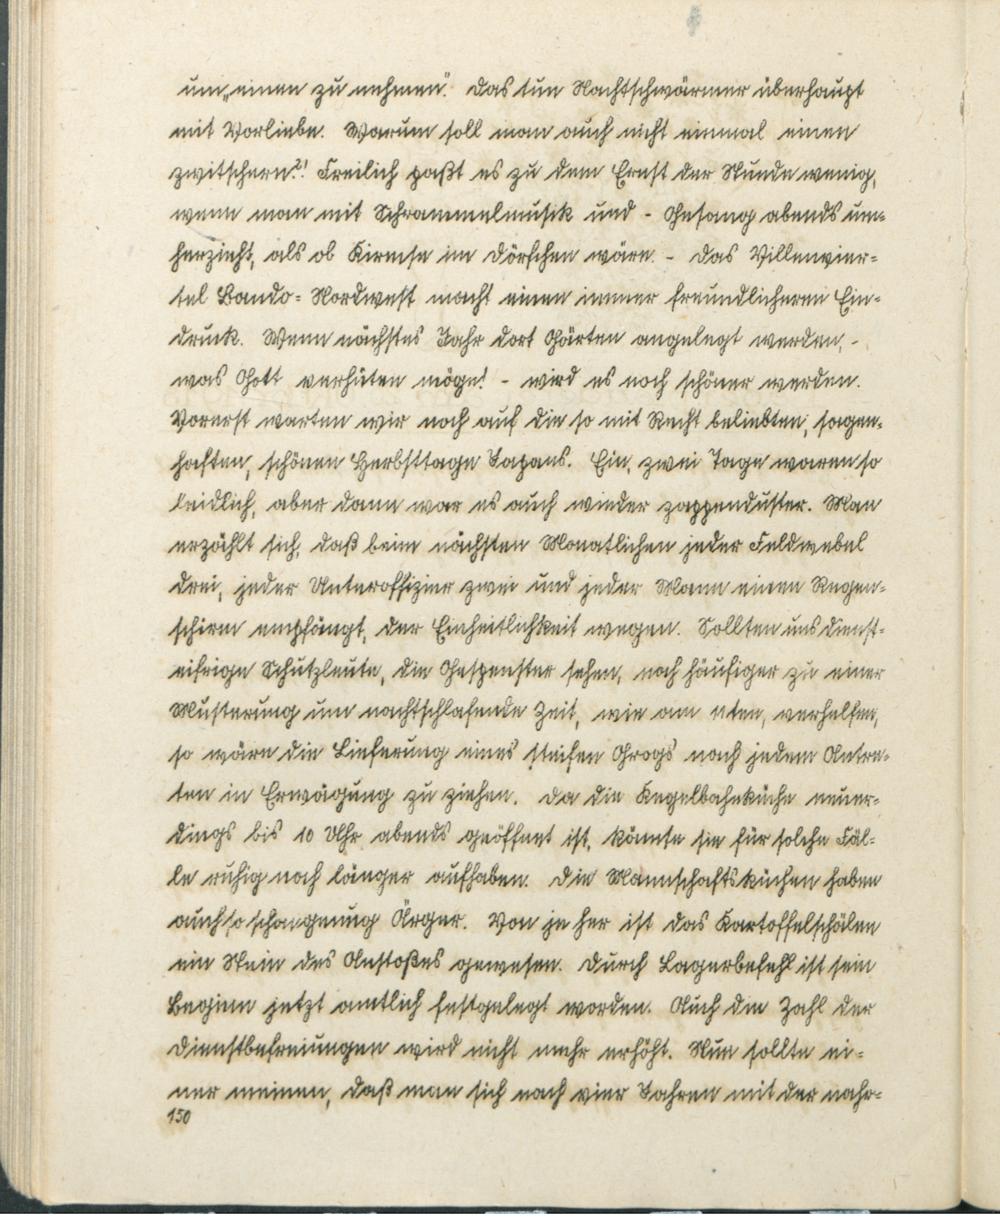 um „einen zu nehmen“. Das tun Nachtschwärmer überhaupt
mit Vorliebe. Warum soll man auch nicht einmal einen
zwitschern?! Freilich paßt es zu dem Ernst der Stunde wenig,
wenn man mit Schrammelmusik und - Gesang abends um=
herzieht, als ob Kirmse im Dörfchen wäre. - Das Villenvier=
tel Bando=Nordwest macht einen immer freundlicheren Ein=
druck. Wenn nächstes Jahr dort Gärten angelegt werden, -
was Gott verhüten möge! - wird es noch schöner werden.
Vorerst warten wir noch auf die so mit Recht beliebten, sagen=
haften, schönen Herbsttage Japans. Ein, zwei Tage waren so
leidlich, aber dann war es auch wieder zappenduster. Man
erzählt sich, daß beim nächsten Monatlichen jeder Feldwebel
drei, jeder Unteroffizier zwei und jeder Mann einen Regen=
schirm empfängt, der Einheitlichkeit wegen. Sollten uns dienst=
eifrige Schutzleute, die Gespenster sehen, noch häufiger zu einer
Musterung um nachtschlafende Zeit, wie am nten, verhelfen,
so wäre die Lieferung eines steifen Grogs nach jedem Antre=
ten in Erwägung zu ziehen. Da die Kegelbahnküche neuer=
dings bis 10 Uhr abends geöffnet ist, könnte sie für solche Fäl=
le ruhig noch länger aufhaben. Die Mannschaftsküchen haben
auch so schon genug Ärger. Von je her ist das Kartoffelschälen
ein Stein des Anstoßes gewesen. Durch Lagerbefehl ist sein
Beginn jetzt amtlich festgelegt worden. Auch die Zahl der
Dienstbefreiungen wird nicht mehr erhöht. Nun sollte ei=
ner meinen, daß man sich nach vier Jahren mit der nahr=
150